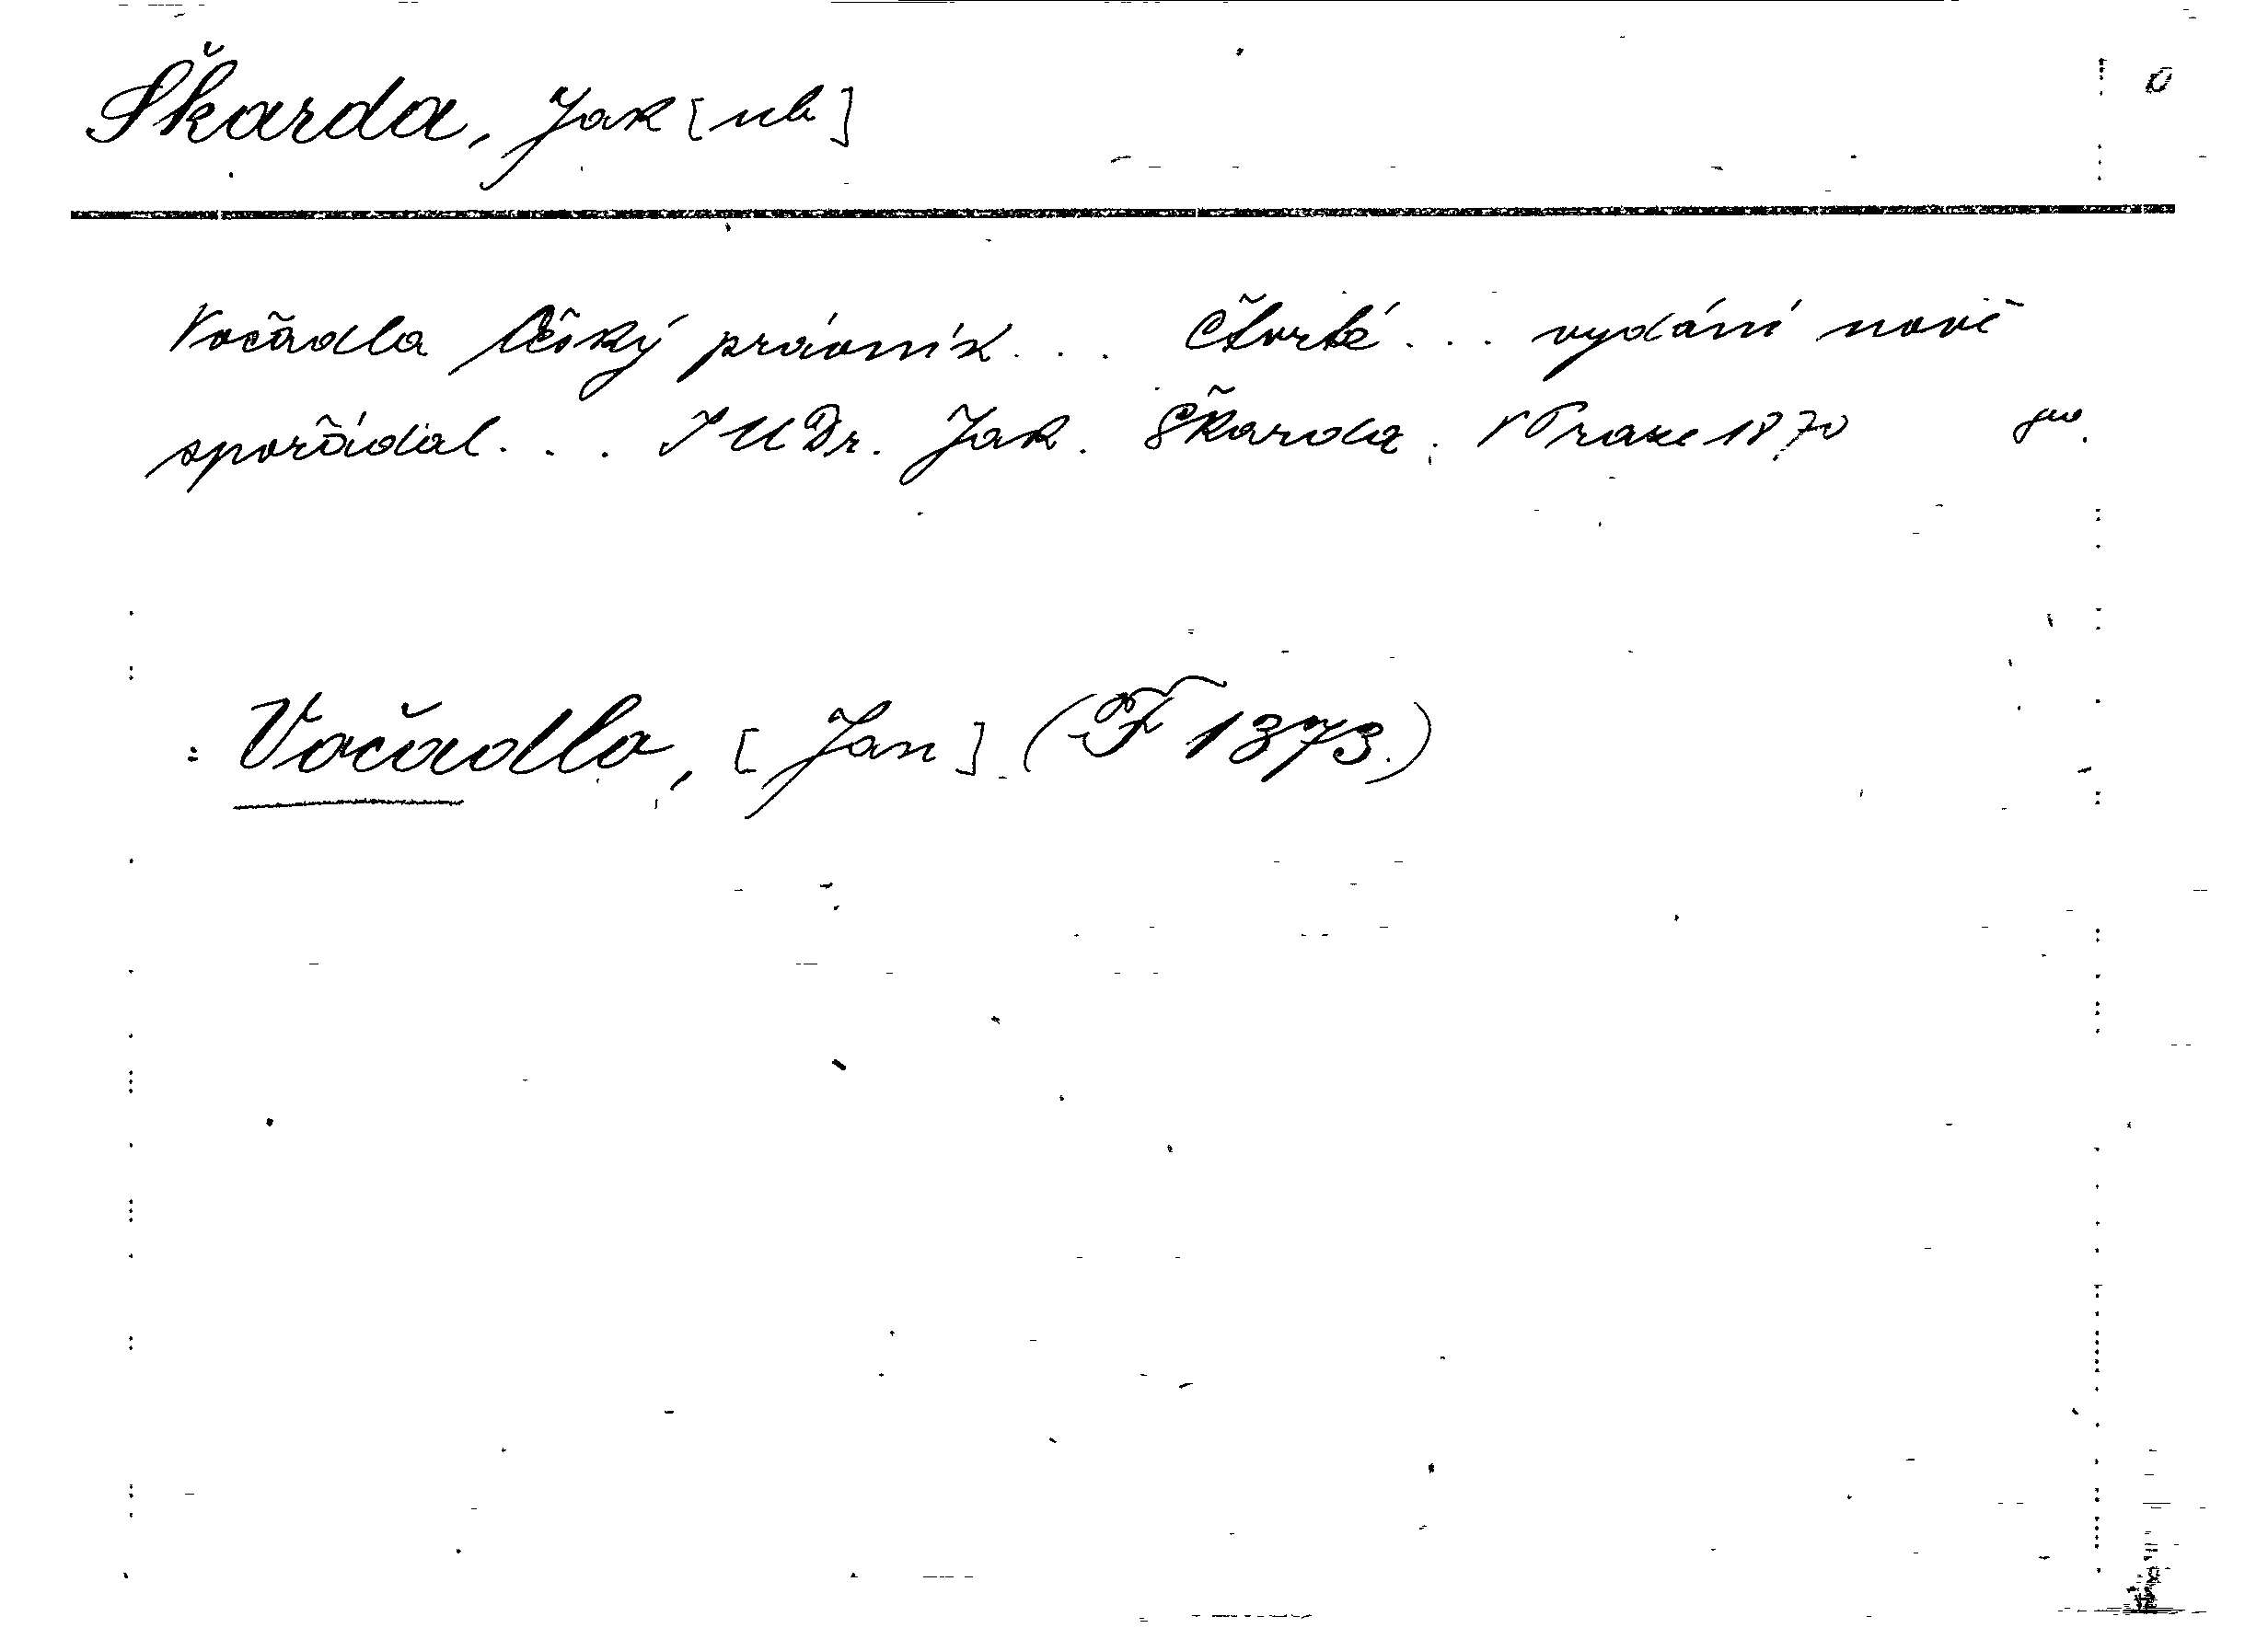 Škarda, Jak[ub]
Vočadla Český právník... Čtvrté... vydání nově
spořádal... JUDr. Jak. Škarda. V Praze 1870
: Vočadlo, [Jan] (F 1873.)